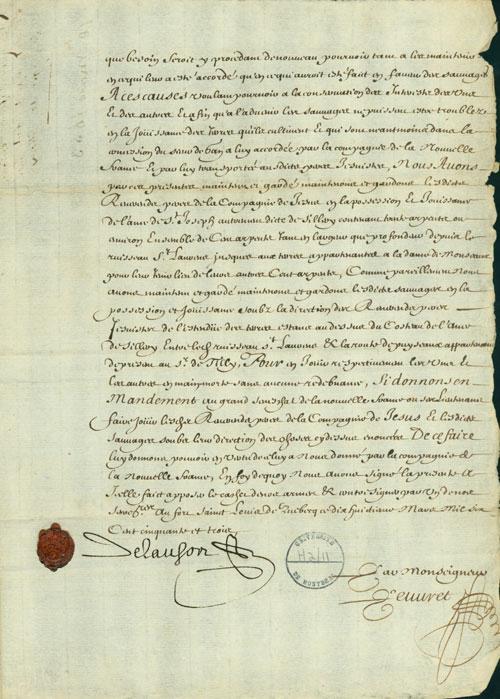 que besoin seroit y procedant denouveau pourvoir tant a iceux maintenir
en ce qui leur a esté accordé qu'en ce qui auroit esté fait en faveur des sauvages
A ces causes voulant pourvoir a la conservation des Interests des uns
Et des autres et afin qu'a l'advenir les sauvages ne puissent estre troublez
en la Jouissance des terres qu'ils cultivent Et qui sont neantmoins dans la
concession du a luy accordée par la compagnie de la Nouvelle
france et par luy transporté ausdicts peres Jesuistes, Nous Avons
par ces presentes maintenu et gardé maintenons et gardons lesdicts
Reverends peres de la Compagnie de Jesus en la possession Et Jouissance
de l'ance de St. Joseph autrement dicte de Sillery contenant arpents ou
environ Ensemble de Cent arpents en largeur que profondeur depuis le
ruisseau St. Laurens jusques aux terres appartenantes a la dame de Monceaux
pour leur tenir lieu de leurs autres Cent arpents, Comme pareillement Nous
avons maintenu et gardé maintenons et gardons lesdicts sauvages en la
possession et jouissance soubz la direction des Reverends peres
Jesuistes de l'estendue des terres estans au dessus du Costeau de l'ance
de Sillery Entre ledict ruisseau St. Laurens & la route de puyseaux appartenant
de present au Sr. de Tilly, Pour en Jouir respectivement les uns Et
les autres en mainmorte sans aucune redebvance, Si donnons en
Mandement au grand seneschal de la nouvelle france ou ses Lieutenans
faire Jouir lesdicts Reverends peres de la Compagnie de Jesus Et lesdicts
sauvages soubz leur direction des choses cy dessus enoncées De ce faire
luy donnons pouvoir en vertu de celuy a Nous donné par la compagnie de
la Nouvelle france, En foy de quoy Nous avons signé la presente a
Icelle fait apposer le cachet de nos armes & contresigner par un de nos
secres. Au fort Saint Louis de Quebecq ce dix huictiesme Mars Mil six
Cent cinquante et trois
Delauson
ARCHIVES
H211
DE MONTREAL
Par Monseigneur